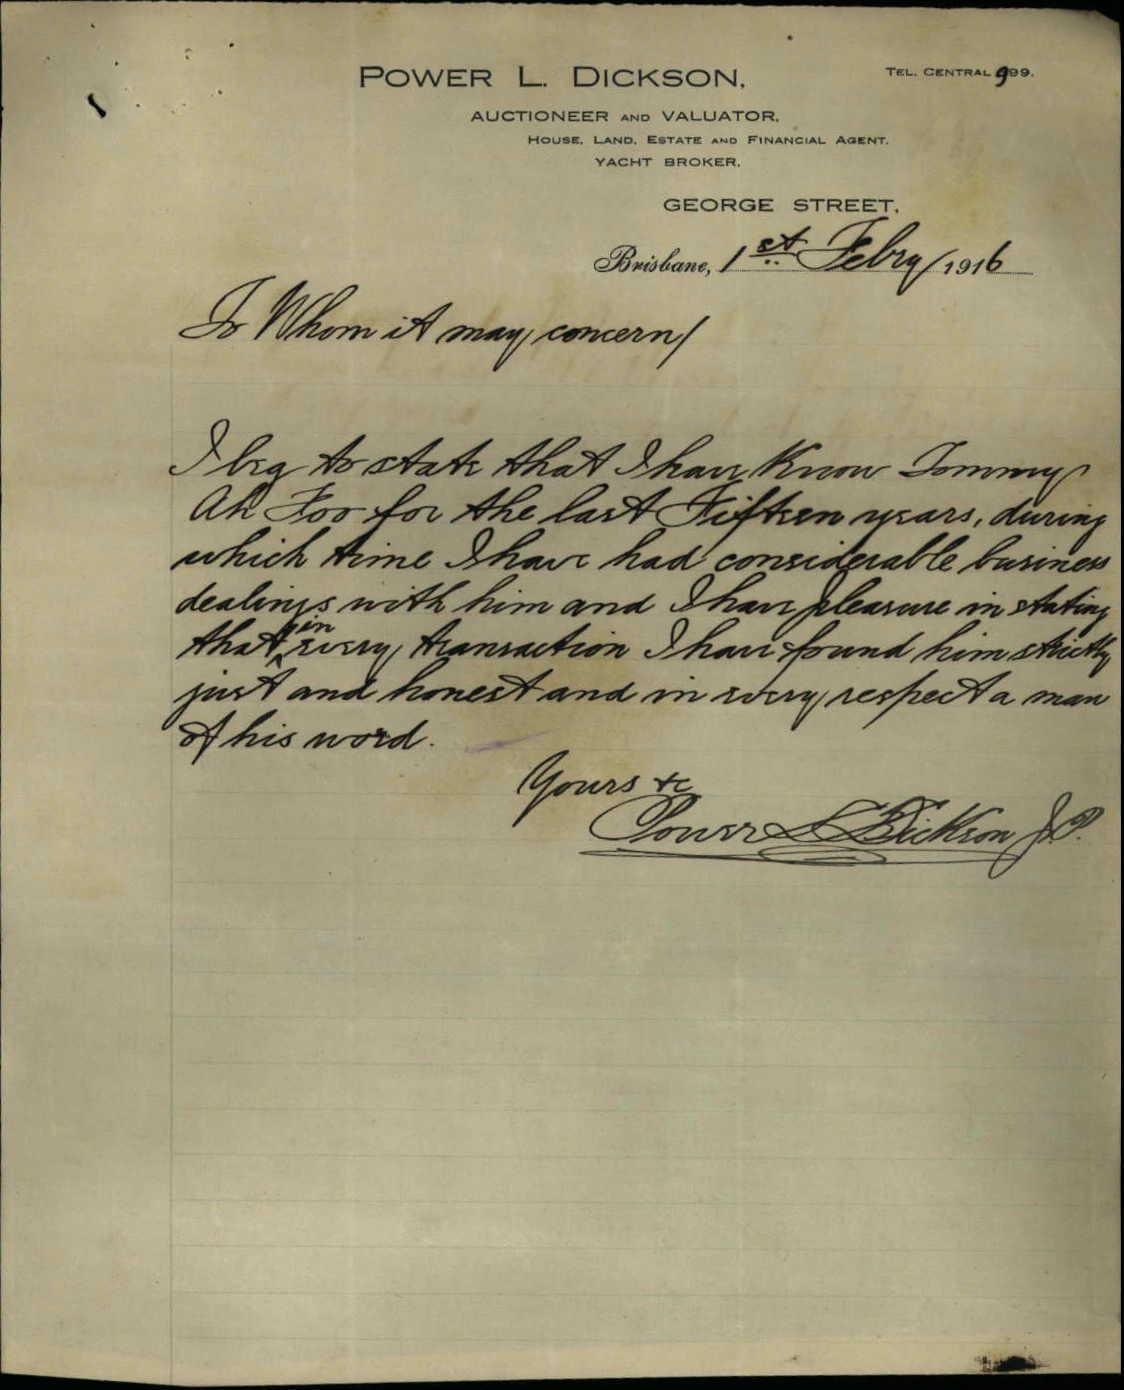 POWER L. DICKSON,
TEL. CENTRAL 999.
AUCTIONEER AND VALUATOR,
HOUSE, LAND, ESTATE AND FINANCIAL AGENT.
YACHT BROKER.
GEORGE STREET,
Brisbane, 1st Febry/1916
To Whom it may concern/
I beg to state that I have Know Tommy
Ah Foo for the last Fifteen years, during
which time I have had considerable business
dealings with him and I have pleasure in stating
that in every transaction I have found him strictly
just and honest and in every respect a man
of his word.
Yours &c
Power L Dickson J.P.